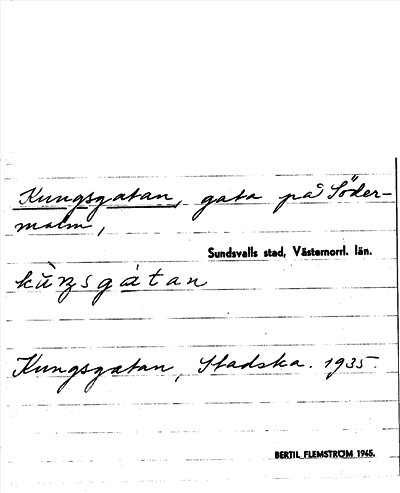 Kungsgatan, gata på Söder-
malm,
Sundsvalls stad, Västernorrl. län.
kùŋsgàtan
Kungsgatan, Stadska. 1935.
BERTIL FLEMSTRÖM 1945.